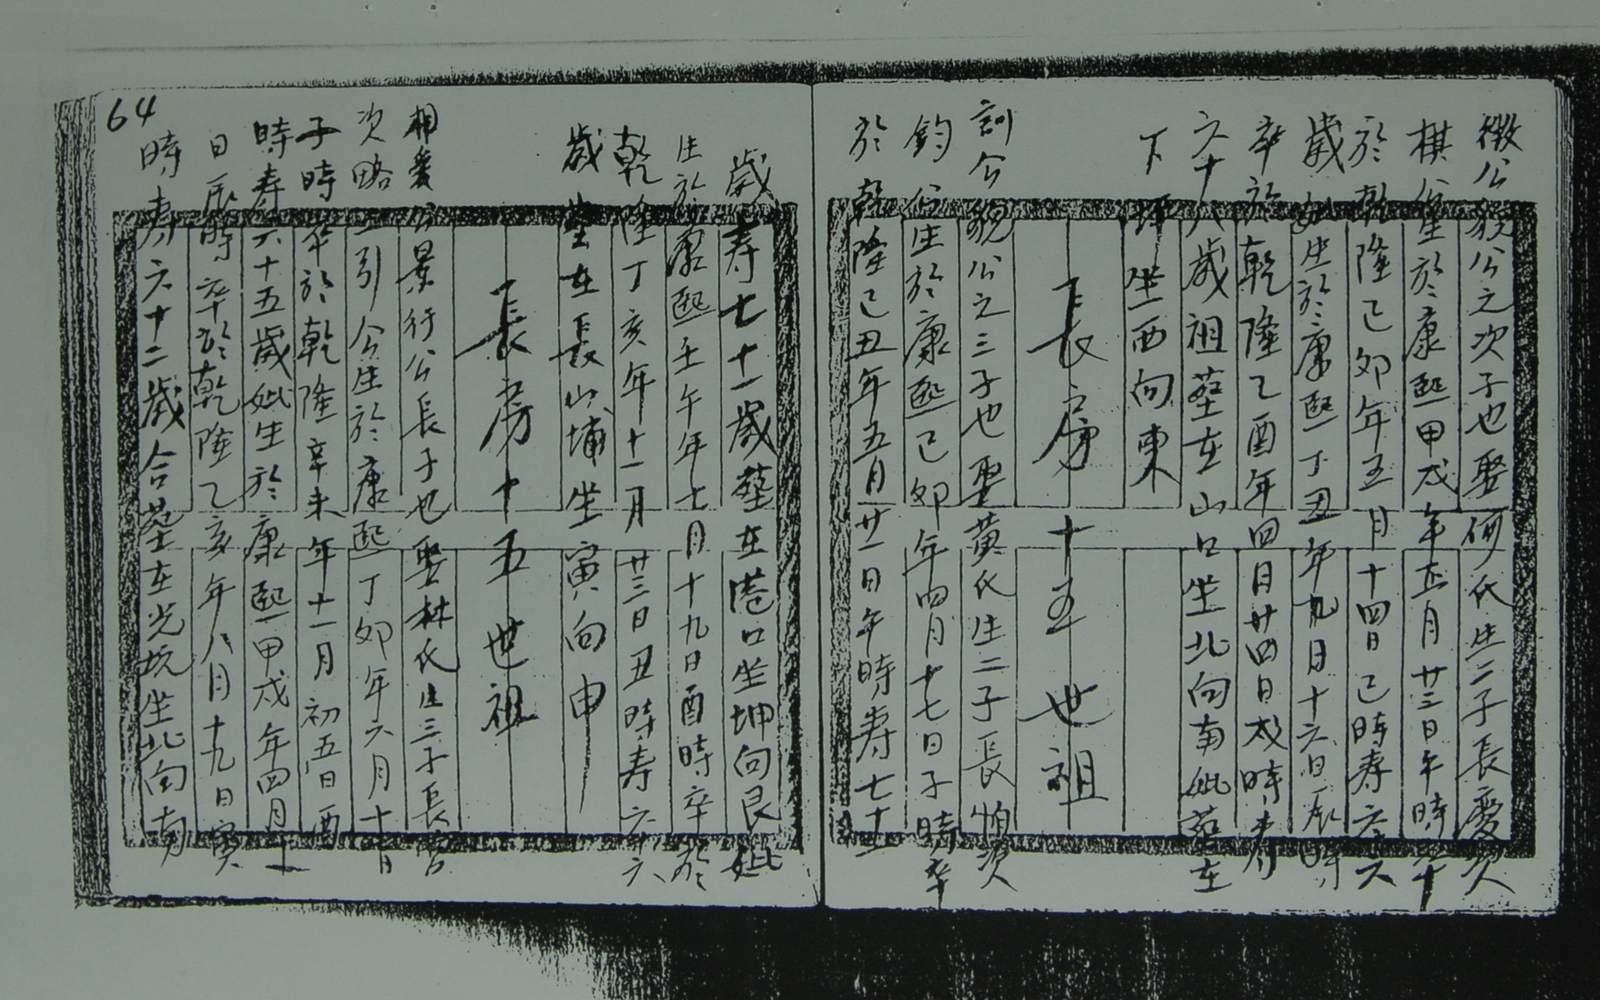 徵公貌公之次子也娶何氏生二子長慶次
棋公生於康熙甲戌年五月廿三日午時卒
於乾隆己卯年五月十四日巳時寿六十六
歲妣生於康熙丁丑年九月十六日辰時
卒於乾隆乙酉年四月廿四日戌時寿
六十八歲祖葬在山口坐北向南妣葬在
下坪坐西向東
長房十五世祖
訓公貌公之三子也娶黄氏生二子長怕次
鈞公生於康熙己卯年四月十七日子時卒
於乾隆己丑年五月廿一日午時寿七十一
歲寿七十一歲葬在港口坐坤向艮妣
生於康熙壬午年七月十九日酉時卒於
乾隆丁亥年十一月廿三日丑時寿六十六
歲葬在長山埔坐寅向申
長房十五世祖
相爰公景行公長子也娶林氏生三子長
次略三引公生於康熙丁卯年六月十日
子時卒於乾隆辛未年十一月初五日酉
時寿六十五歲妣生於康熙甲戌年四月十一
日辰時卒於乾隆乙亥年八月十九日寅
時寿六十二歲合葬在光坑坐北向南
64